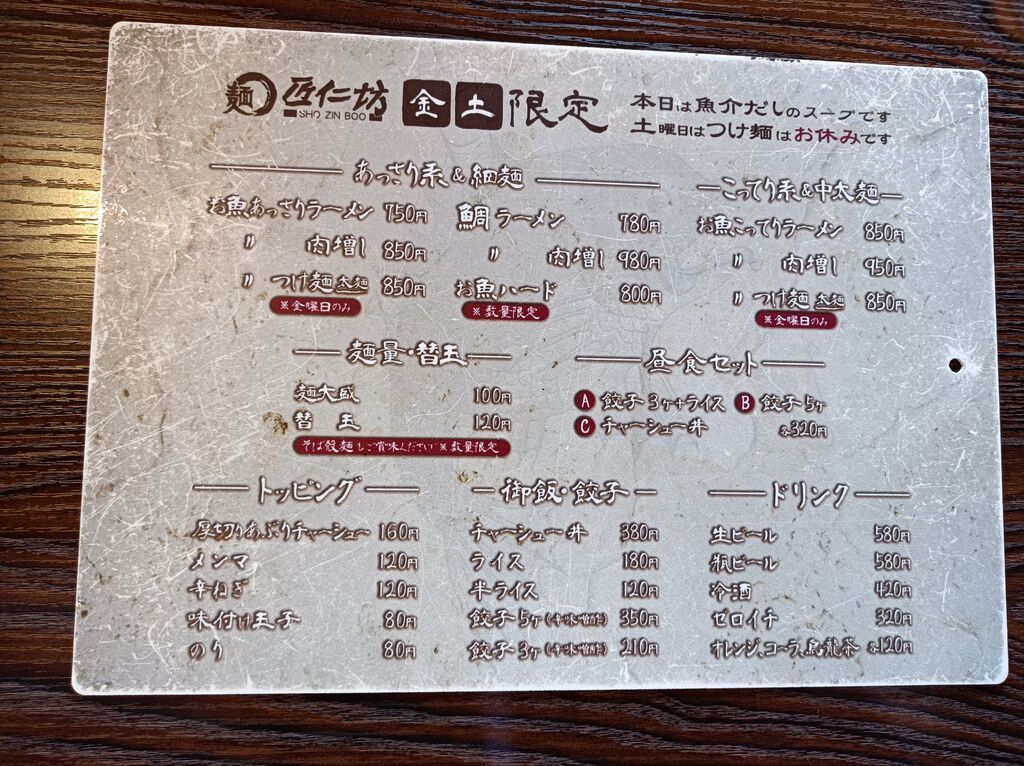 麺 匠仁坊 金土限定
SHO ZIN BOO
本日は魚介だしのスープです
土曜日はつけ麺はお休みです
あっさり系&細麺
お魚あっさりラーメン 750円
〃 肉増し 850円
〃 つけ麺 太麺 850円
※金曜日のみ
鯛ラーメン 780円
〃 肉増し 980円
お魚ハード 800円
※数量限定
こってり系&中太麺
お魚こってりラーメン 850円
〃 肉増し 950円
〃 つけ麺 太麺 850円
※金曜日のみ
麺量・替玉
麺大盛 100円
替玉 120円
そば殻麺もご賞味ください ※数量限定
昼食セット
A 餃子3ヶ+ライス B 餃子5ヶ
C チャーシュー丼 各320円
トッピング
厚切りあぶりチャーシュー 160円
メンマ 120円
辛ねぎ 120円
味付け玉子 80円
のり 80円
御飯・餃子
チャーシュー丼 380円
ライス 180円
半ライス 120円
餃子5ヶ 350円
餃子3ヶ 210円
ドリンク
生ビール 580円
瓶ビール 580円
冷酒 420円
ゼロイチ 320円
オレンジ、コーラ、烏龍茶 各120円